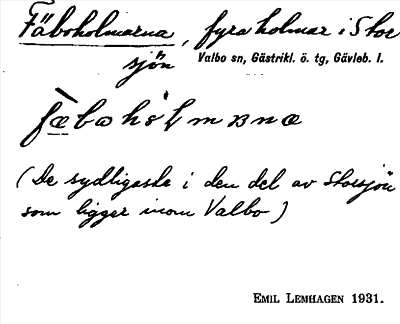 Fäboholmarna, fyra holmar i Stor
sjön Valbo sn, Gästrikl. ö. tg, Gävleb. l.
(De sydligaste i den del av Storsjön
som ligger inom Valbo)
EMIL LEMHAGEN 1931.